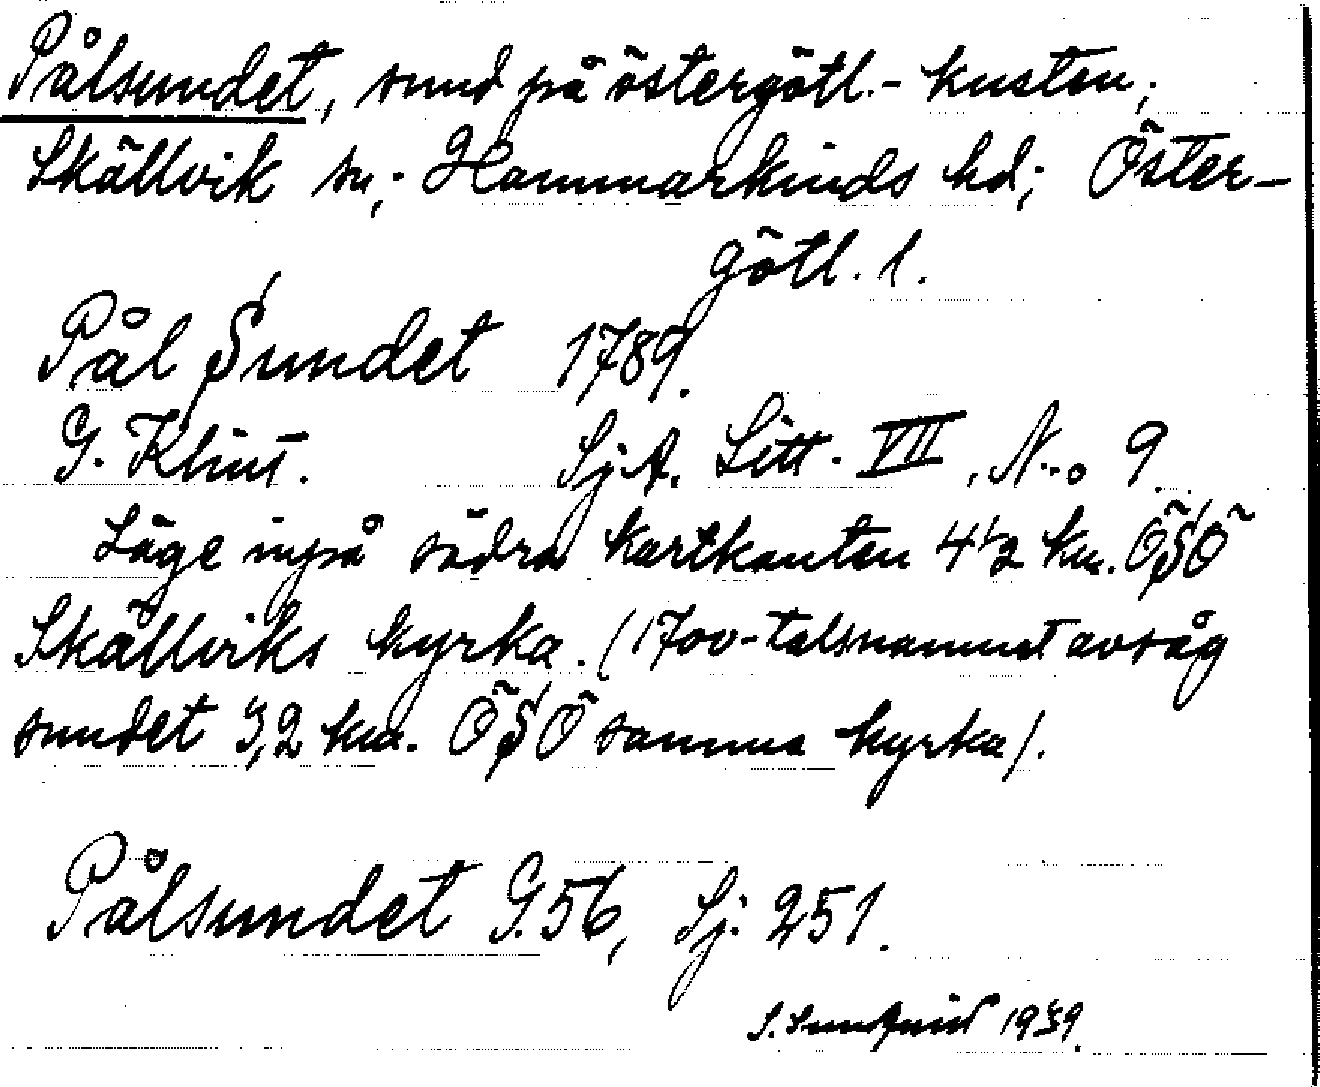 Pålsundet, sund på östergötl.-kusten;
Skällvik sn; Hammarkinds hd; Öster-
götl. l.
Pål Sundet 1789.
G. Klint. Sj.A. Litt. VII, N..o 9.
Läge invpå södra kartkanten 4½ km. ÖSÖ
Skällviks kyrka. (1700-talsnamnet avsåg
sundet 3,2 km. ÖSÖ samma kyrka).
Pålsundet G.56, Sj. 251.
S. Sundquist 1939.